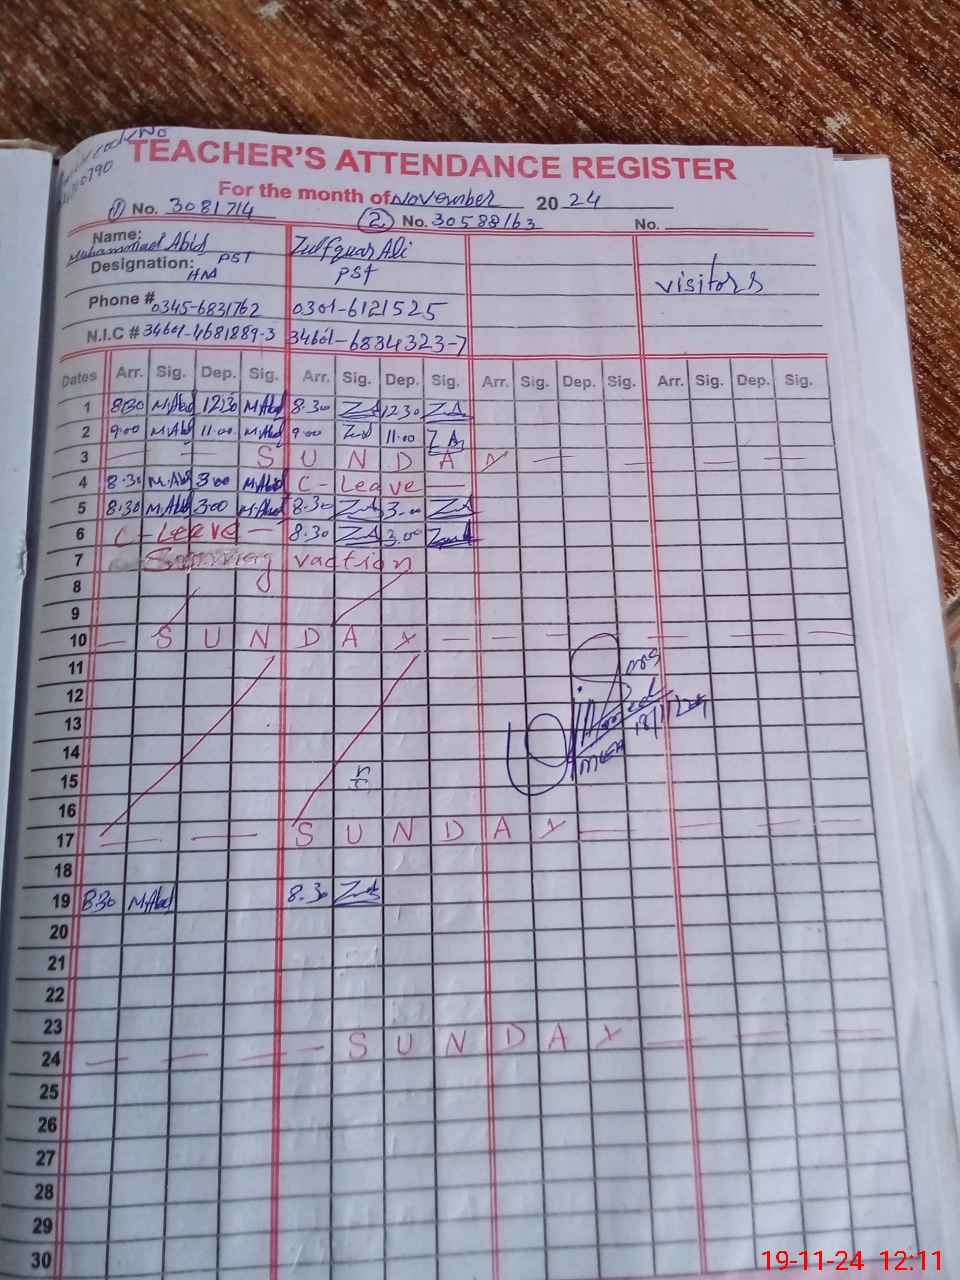 TEACHER'S ATTENDANCE REGISTER
For the month of November 20 24
① No. 3081714 ② No. 30588163 No.
Name: Muhammad Abid Zulfquar Ali
Designation: PST HM PST visitors
Phone # 0345-6831762 0301-6121525
N.I.C # 34601-4681289-3 34601-6834323-7
Dates Arr. Sig. Dep. Sig. Arr. Sig. Dep. Sig. Arr. Sig. Dep. Sig. Arr. Sig. Dep. Sig.
1 8:30 M.Abid 12:30 M.Abid 8.30 ZA 12.30 ZA
2 9:00 M.Abid 11:00 M.Abid 9:00 11:00 ZA
3 — — S U N D A Y — — — — — —
4 8:30 M.Abid 3:00 M.Abid C - Leave —
5 8:30 M.Abid 3:00 M.Abid 8.30 3.00
6 C - Leave - 8.30 ZA 3.00
7 vaction
8
9
10 — S U N D A Y — — — — — — —
11
12
13
14
15
16
17 — — S U N D A Y — — — — —
18
19 8:30 M.Abid 8.30
20
21
22
23
24 — — — — S U N D A Y — — — —
25
26
27
28
29
30
19-11-24 12:11